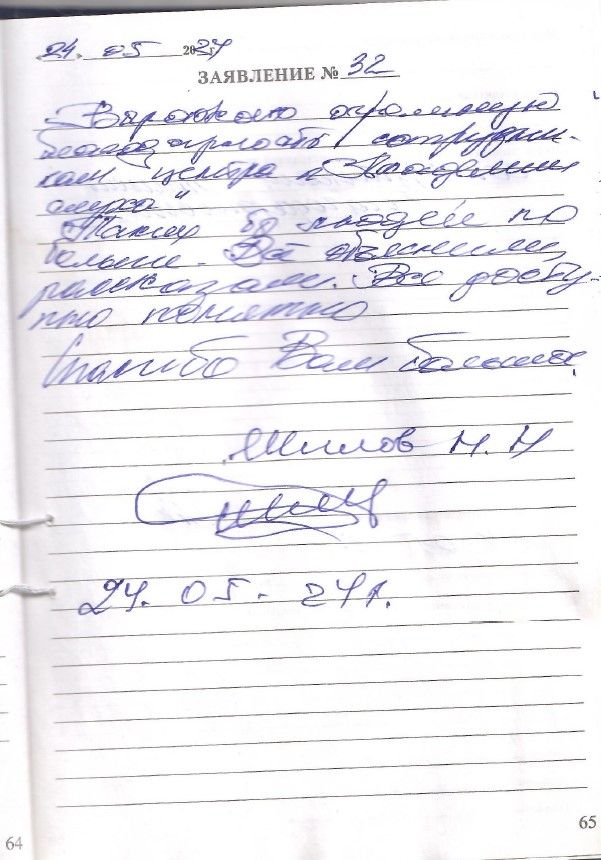 24. 05 2024 г
ЗАЯВЛЕНИЕ № 32
Выражаю огромную
благодарность сотрудни-
кам центра "Академия
слуха"
Таких бы людей по
больше. Всё объяснили,
рассказали. Все досту-
пно понятно
Спасибо Вам большое
Шилов Н. Н
24. 05. 24 г.
64
65